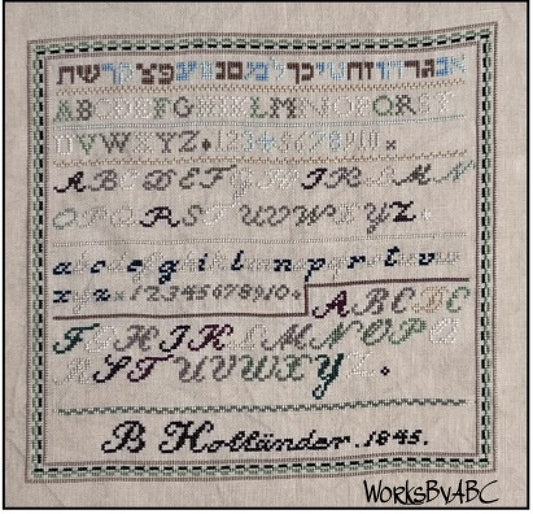 אבגדהוזחטיכךלמםנןסעפצקרשת
ABCDEFGHIKLMNOPQRST
UVWXYZ 12345678910 x
ABCDEFGHIKLMN
OPQRSTUVWXYZ
abcdefghiklmnopqrstuvw
xyz x 12345678910 ABCDE
FGHIKLMNOPQ
RSTUVWXYZ
B Holländer. 1845.
WorksByABC